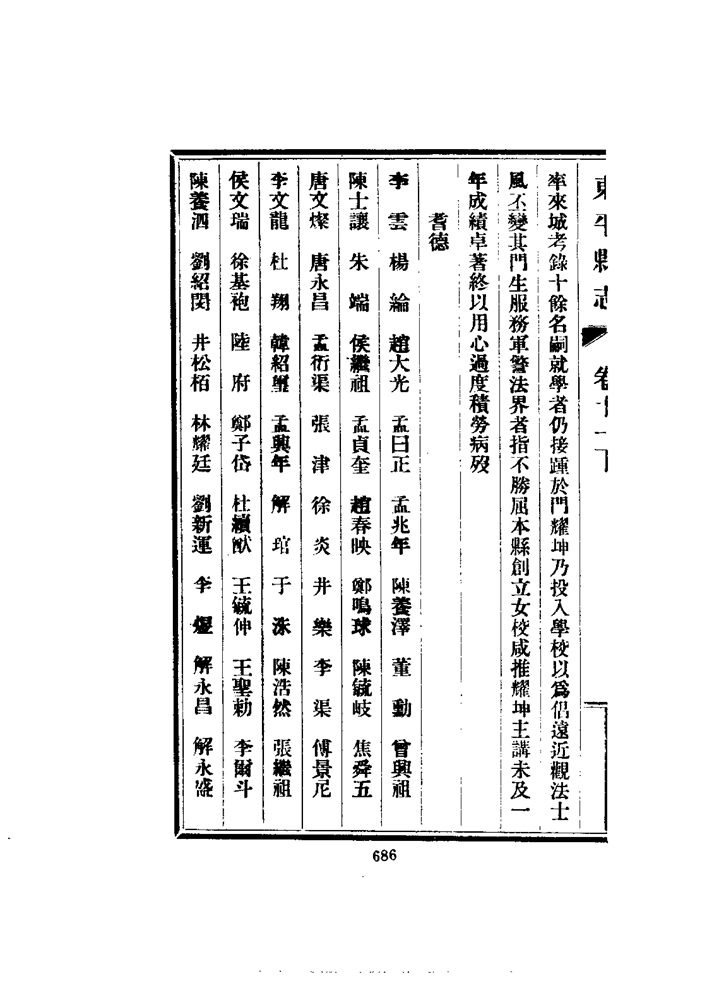 東平縣志 卷十一下
率來城考錄十餘名嗣就學者仍接踵於門耀坤乃投入學校以爲倡遠近觀法士
風丕變其門生服務軍警法界者指不勝屈本縣創立女校咸推耀坤主講未及一
年成績卓著終以用心過度積勞病歿
耆德
李雲 楊綸 趙大光 孟曰正 孟兆年 陳養澤 董勳 曾興祖
陳士讓 朱端 侯繼祖 孟貞奎 趙春映 鄭鳴球 陳毓岐 焦舜五
唐文燦 唐永昌 孟衍渠 張津 徐炎 井樂 李渠 傅景尼
李文龍 杜翔 韓紹璽 孟興年 解琯 于泳 陳浩然 張繼祖
侯文瑞 徐基袍 陸府 鄭子岱 杜續猷 王毓伸 王聖勅 李爾斗
陳養泗 劉紹閔 井松栢 林耀廷 劉新運 李煜 解永昌 解永盛
686